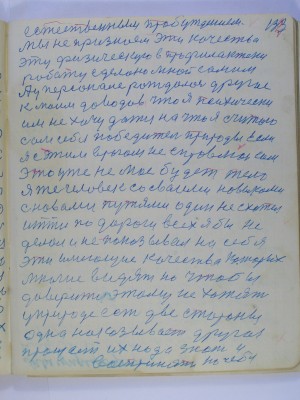 естественным пробуждением.
мы не признаем эти качества
эту физическую в профилактони
работу сделано мной самим
А у персонале рождало другие
к моим доводов что я психически
им не хочу дати на что я считого
сам себя победител природы. Если
я с этим врагом не справлюсь сам
Это уже не мое будет тело
Я же человек со своими новыми
с новами путями один не схотел
итти по дороги всех я бы не
делал и не показывал на себя
эти имеющие качества которых
многие видят но чтобы
доверит этому не хажает
у природе есть две стороны
одна наказывает другая
прощает их надо знать и
воспринят на себя